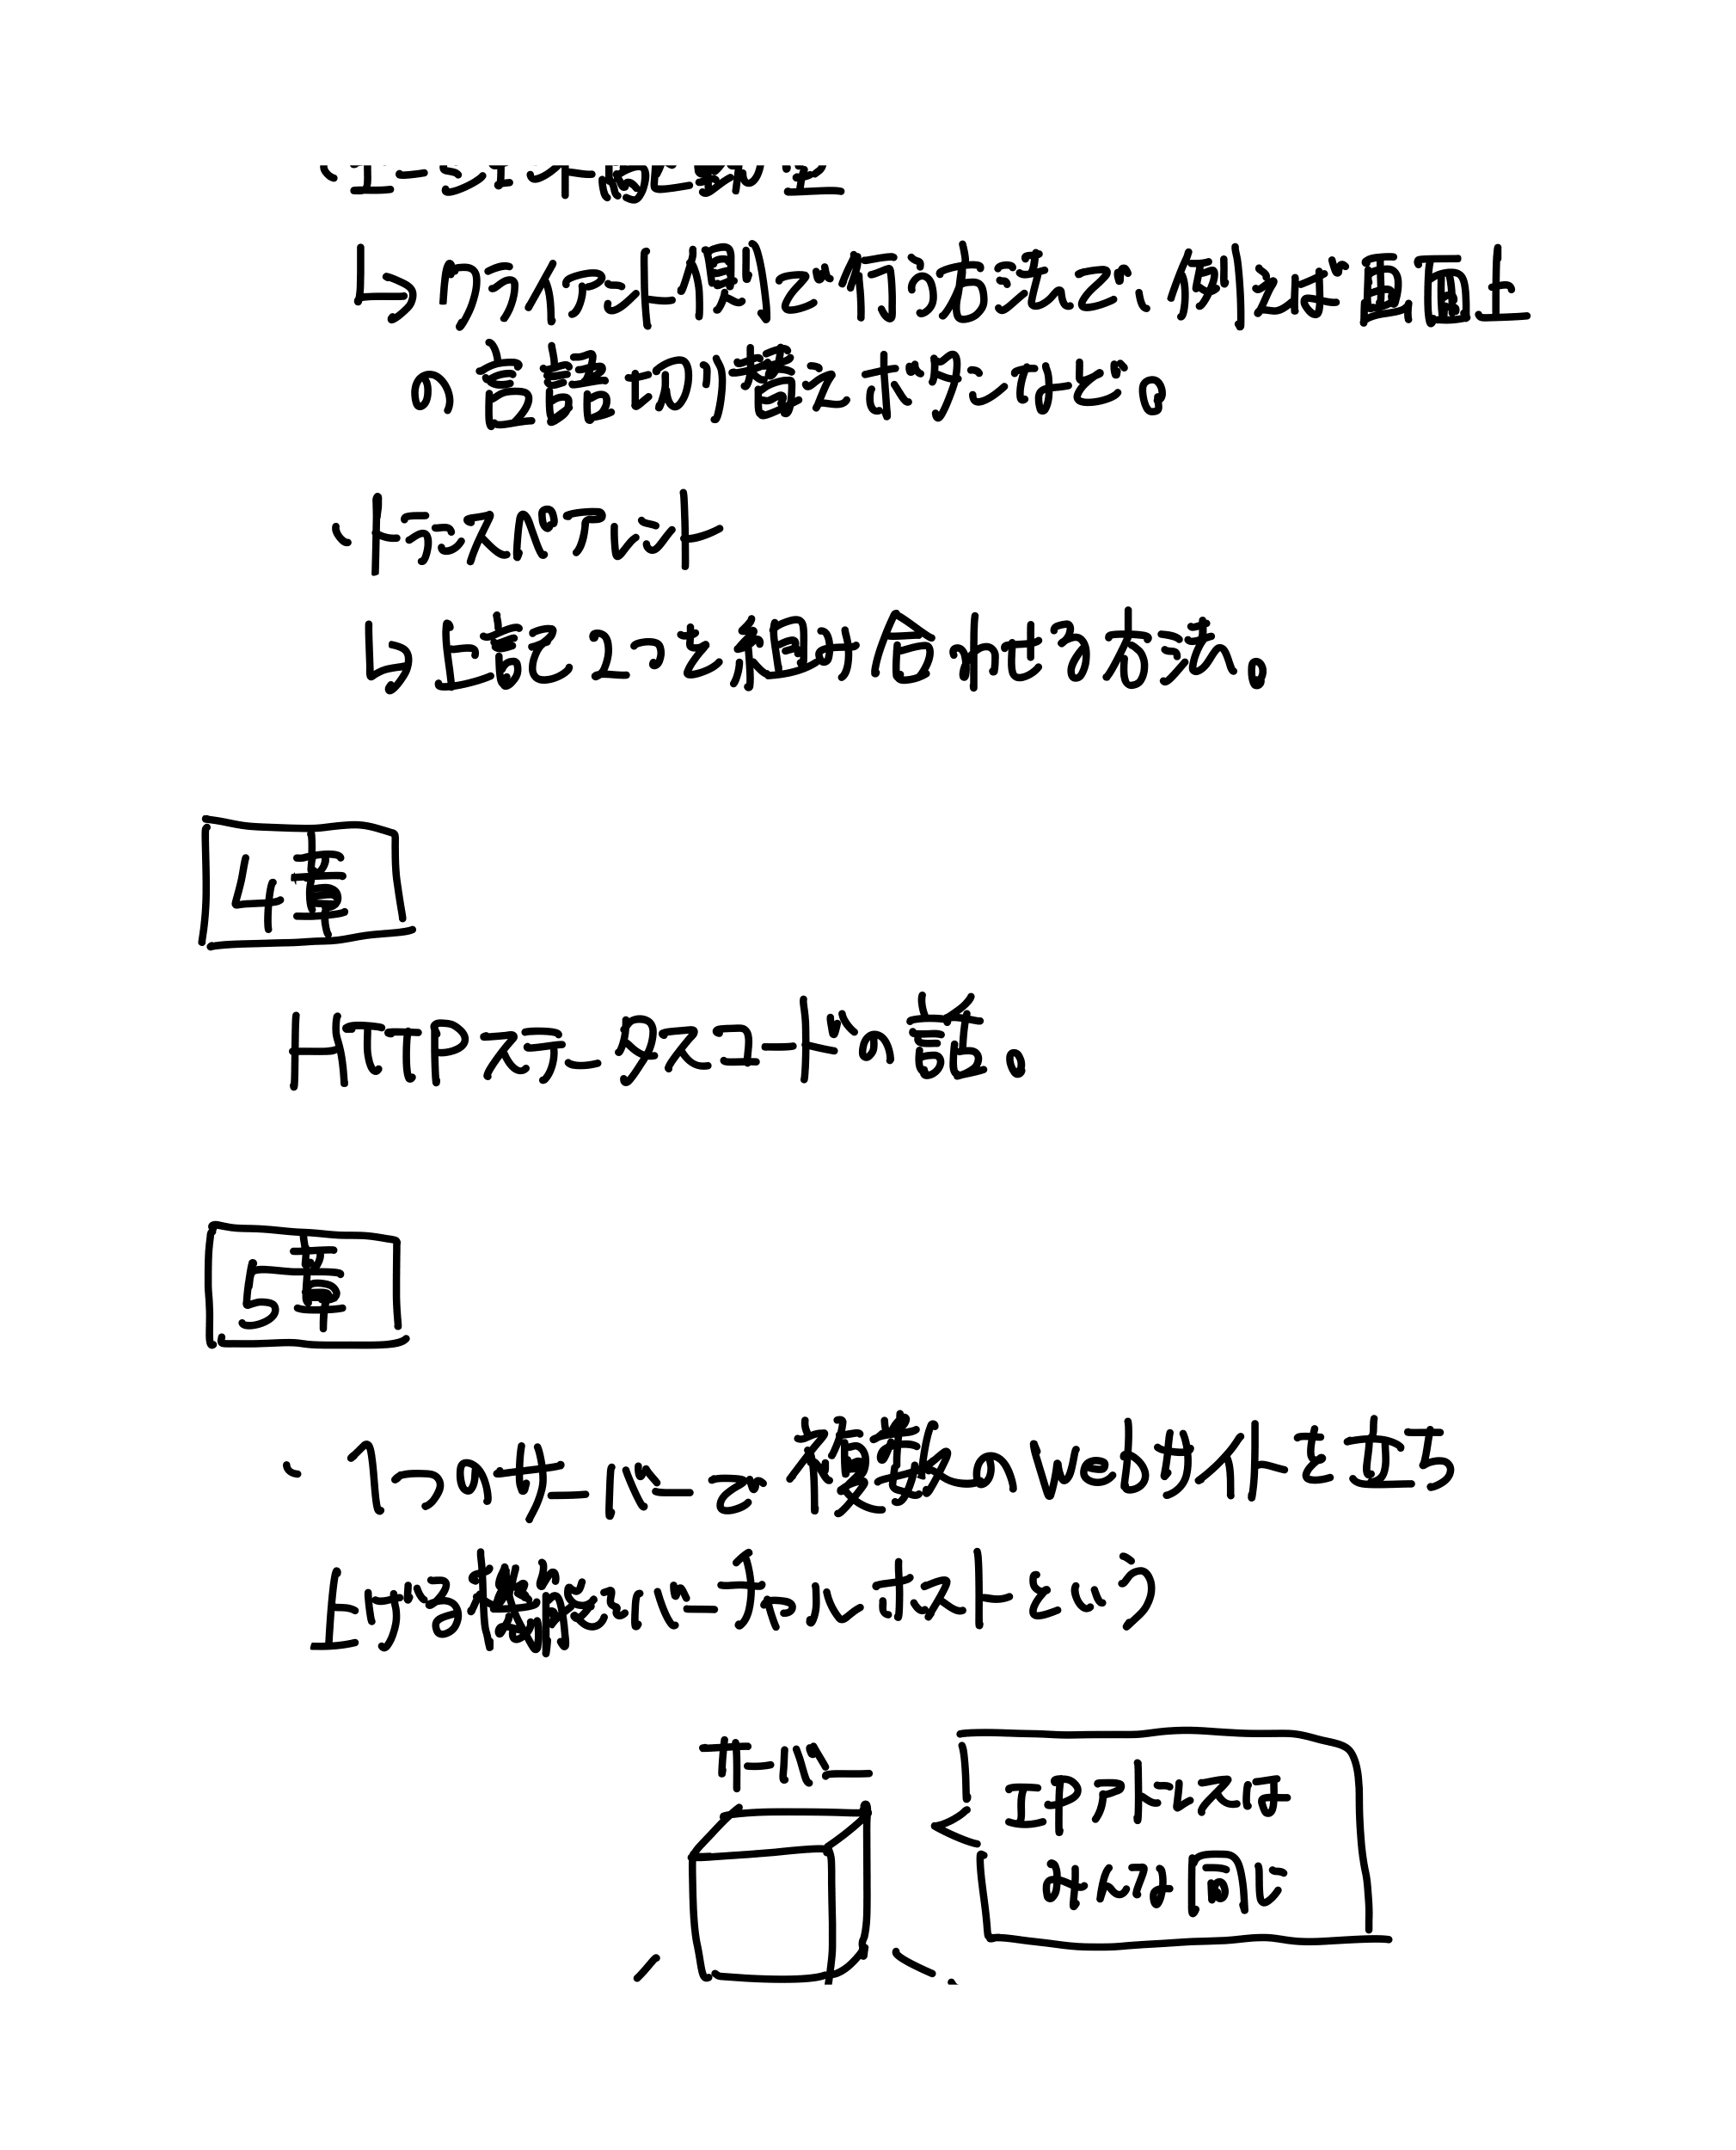 ⇒クライアント側で行う方法で、例えば画面上
の言語切り替えボタンなど。
・トランスペアレント
↳上記2つを組み合わせる方法。
4章
HTTPステータスコードの話。
5章
・1つのサーバーで複数のWebサイトを立ち
上げる機能にバーチャルホストという
サーバー
IPアドレスは
みんな同じ